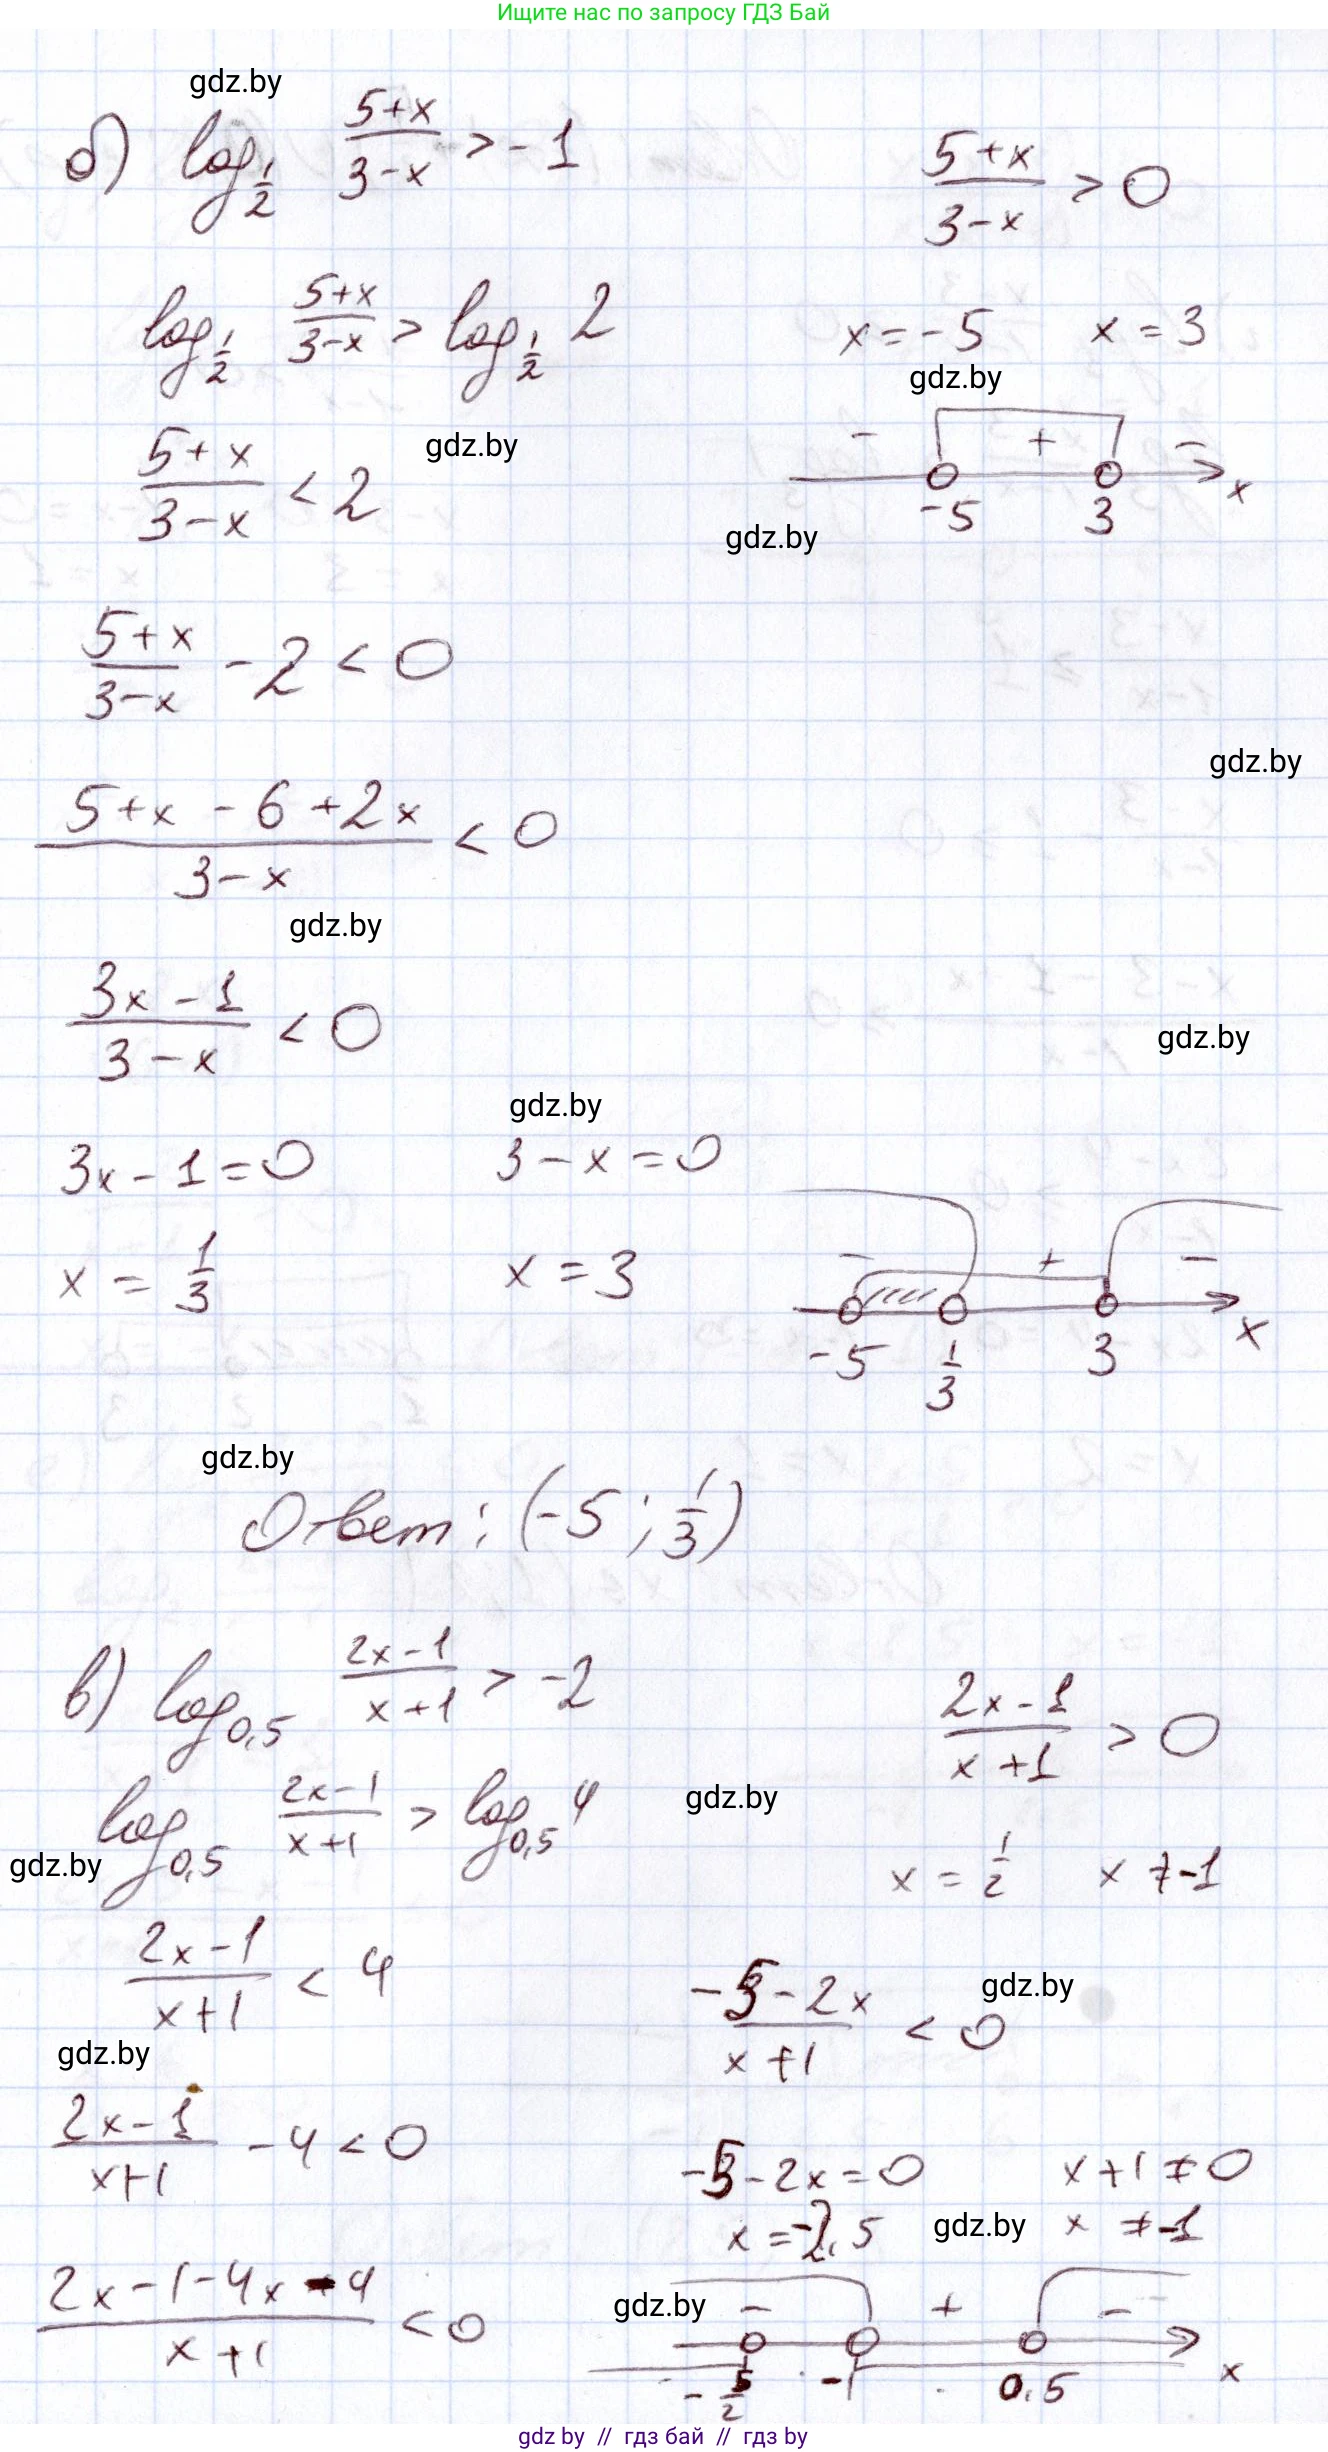 Ищите нас по запросу ГДЗ Бай
gdz.by
б) log_{1/2} (5+x)/(3-x) > -1
(5+x)/(3-x) > 0
log_{1/2} (5+x)/(3-x) > log_{1/2} 2
x = -5   x = 3
gdz.by
(5+x)/(3-x) < 2
gdz.by
- + -
-5 3 x
gdz.by
(5+x)/(3-x) - 2 < 0
gdz.by
(5+x - 6 + 2x)/(3-x) < 0
gdz.by
(3x - 1)/(3-x) < 0
gdz.by
gdz.by
3x - 1 = 0   3 - x = 0
x = 1/3   x = 3
- + -
-5 1/3 3 x
gdz.by
Ответ: (-5; 1/3)
в) log_{0,5} (2x-1)/(x+1) > -2
(2x-1)/(x+1) > 0
log_{0,5} (2x-1)/(x+1) > log_{0,5} 4
gdz.by
gdz.by
x = 1/2   x ≠ -1
(2x-1)/(x+1) < 4
(-5-2x)/(x+1) < 0
gdz.by
gdz.by
(2x-1)/(x+1) - 4 < 0
-5-2x = 0   x+1 ≠ 0
x = -2,5   x ≠ -1
gdz.by
(2x-1-4x-4)/(x+1) < 0
gdz.by
- + -
-5/2 -1 0,5 x
gdz by // гдз бай // gdz by